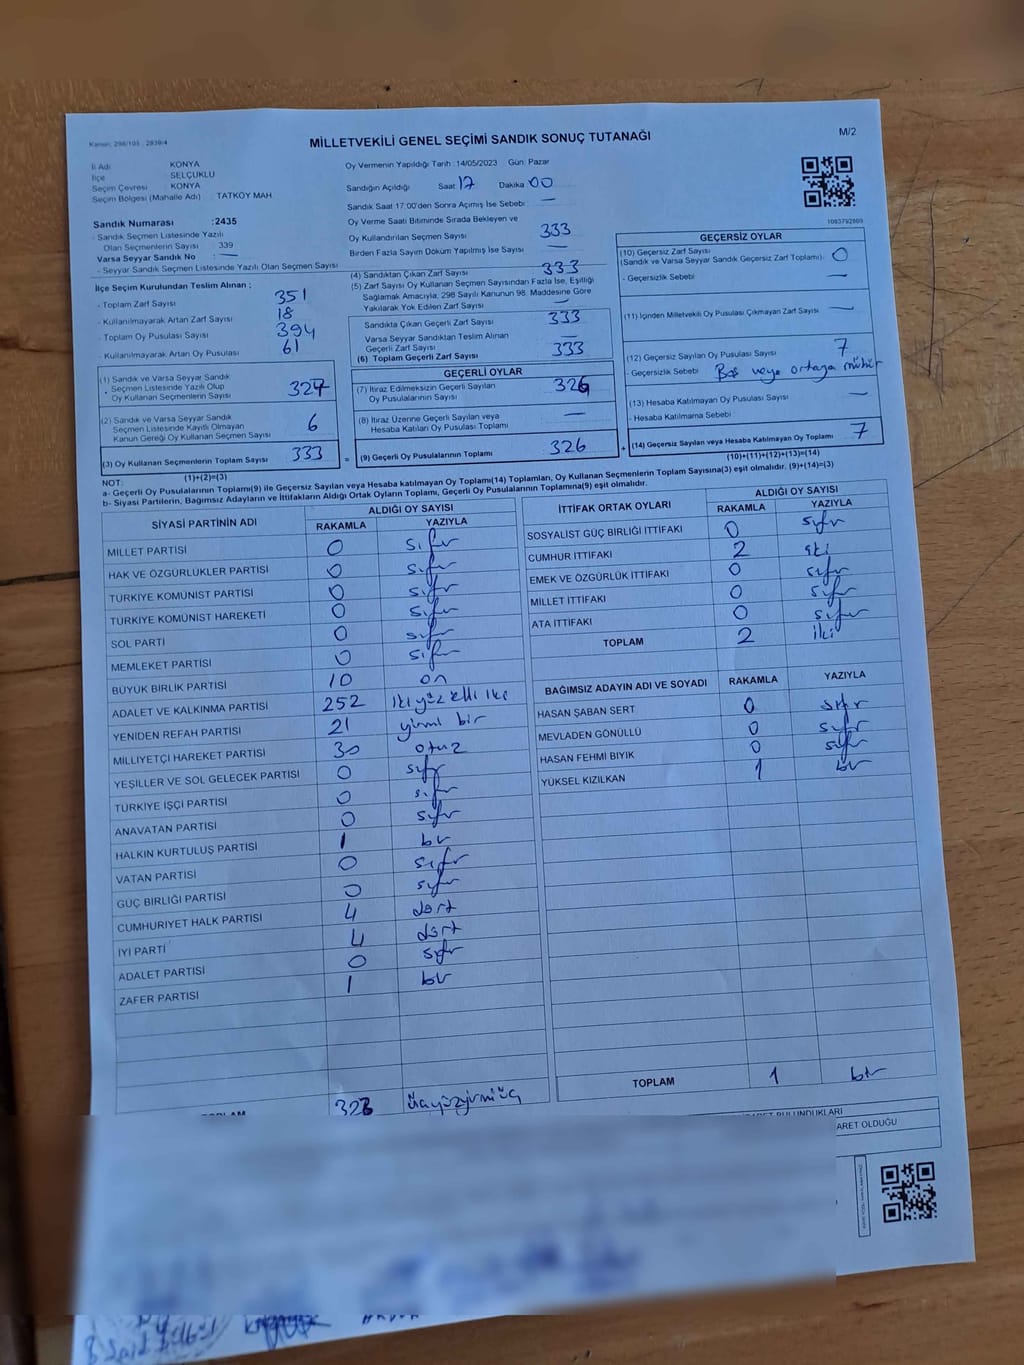 Kanun: 298/105 , 2839/4
MİLLETVEKİLİ GENEL SEÇİMİ SANDIK SONUÇ TUTANAĞI
M/2
İl Adı KONYA
İlçe SELÇUKLU
Seçim Çevresi KONYA
Seçim Bölgesi (Mahalle Adı) : TATKÖY MAH
Sandık Numarası :2435
- Sandık Seçmen Listesinde Yazılı
Olan Seçmenlerin Sayısı : 339
Varsa Seyyar Sandık No : —
- Seyyar Sandık Seçmen Listesinde Yazılı Olan Seçmen Sayısı
İlçe Seçim Kurulundan Teslim Alınan ;
- Toplam Zarf Sayısı 351
- Kullanılmayarak Artan Zarf Sayısı 18
- Toplam Oy Pusulası Sayısı 394
- Kullanılmayarak Artan Oy Pusulası 61
(1) Sandık ve Varsa Seyyar Sandık
Seçmen Listesinde Yazılı Olup
Oy Kullanan Seçmenlerin Sayısı 327
(2) Sandık ve Varsa Seyyar Sandık
Seçmen Listesinde Kayıtlı Olmayan
Kanun Gereği Oy Kullanan Seçmen Sayısı 6
(3) Oy Kullanan Seçmenlerin Toplam Sayısı 333
(1)+(2)=(3)
Oy Vermenin Yapıldığı Tarih :14/05/2023 Gün: Pazar
Sandığın Açıldığı Saat 17 Dakika 00
Sandık Saat 17:00'den Sonra Açmış İse Sebebi : —
Oy Verme Saati Bitiminde Sırada Bekleyen ve
Oy Kullandırılan Seçmen Sayısı 333
Birden Fazla Sayım Döküm Yapılmış İse Sayısı —
(4) Sandıktan Çıkan Zarf Sayısı 333
(5) Zarf Sayısı Oy Kullanan Seçmen Sayısından Fazla İse, Eşitliği
Sağlamak Amacıyla; 298 Sayılı Kanunun 98. Maddesine Göre
Yakılarak Yok Edilen Zarf Sayısı —
Sandıkta Çıkan Geçerli Zarf Sayısı 333
Varsa Seyyar Sandıktan Teslim Alınan
Geçerli Zarf Sayısı —
(6) Toplam Geçerli Zarf Sayısı 333
GEÇERLİ OYLAR
(7) İtiraz Edilmeksizin Geçerli Sayılan
Oy Pusulasının Sayısı 326
(8) İtiraz Üzerine Geçerli Sayılan veya
Hesaba Katılan Oy Pusulası Toplamı —
= (9) Geçerli Oy Pusulalarının Toplamı 326 +
1083792809
GEÇERSİZ OYLAR
(10) Geçersiz Zarf Sayısı
(Sandık ve Varsa Seyyar Sandık Geçersiz Zarf Toplamı) 0
- Geçersizlik Sebebi : —
(11) İçinden Milletvekili Oy Pusulası Çıkmayan Zarf Sayısı —
(12) Geçersiz Sayılan Oy Pusulası Sayısı 7
- Geçersizlik Sebebi : Boş veya ortaya mühür
(13) Hesaba Katılmayan Oy Pusulası Sayısı —
- Hesaba Katılmama Sebebi :
(14) Geçersiz Sayılan veya Hesaba Katılmayan Oy Toplamı 7
(10)+(11)+(12)+(13)=(14)
NOT:
a- Geçerli Oy Pusulalarının Toplamı(9) ile Geçersiz Sayılan veya Hesaba katılmayan Oy Toplamı(14) Toplamları, Oy Kullanan Seçmenlerin Toplam Sayısına(3) eşit olmalıdır. (9)+(14)=(3)
b- Siyasi Partilerin, Bağımsız Adayların ve İttifakların Aldığı Ortak Oyların Toplamı, Geçerli Oy Pusulalarının Toplamına(9) eşit olmalıdır.
SİYASİ PARTİNİN ADI ALDIĞI OY SAYISI
RAKAMLA YAZIYLA
MİLLET PARTİSİ 0 sıfır
HAK VE ÖZGÜRLÜKLER PARTİSİ 0 sıfır
TÜRKİYE KOMÜNİST PARTİSİ 0 sıfır
TÜRKİYE KOMÜNİST HAREKETİ 0 sıfır
SOL PARTİ 0 sıfır
MEMLEKET PARTİSİ 0 sıfır
BÜYÜK BİRLİK PARTİSİ 10 on
ADALET VE KALKINMA PARTİSİ 252 iki yüz elli iki
YENİDEN REFAH PARTİSİ 21 yirmi bir
MİLLİYETÇİ HAREKET PARTİSİ 30 otuz
YEŞİLLER VE SOL GELECEK PARTİSİ 0 sıfır
TÜRKİYE İŞÇİ PARTİSİ 0 sıfır
ANAVATAN PARTİSİ 0 sıfır
HALKIN KURTULUŞ PARTİSİ 1 bir
VATAN PARTİSİ 0 sıfır
GÜÇ BİRLİĞİ PARTİSİ 0 sıfır
CUMHURİYET HALK PARTİSİ 4 dört
İYİ PARTİ 4 dört
ADALET PARTİSİ 0 sıfır
ZAFER PARTİSİ 1 bir
TOPLAM 323 üçyüzyirmiüç
İTTİFAK ORTAK OYLARI ALDIĞI OY SAYISI
RAKAMLA YAZIYLA
SOSYALİST GÜÇ BİRLİĞİ İTTİFAKI 0 sıfır
CUMHUR İTTİFAKI 2 iki
EMEK VE ÖZGÜRLÜK İTTİFAKI 0 sıfır
MİLLET İTTİFAKI 0 sıfır
ATA İTTİFAKI 0 sıfır
TOPLAM 2 iki
BAĞIMSIZ ADAYIN ADI VE SOYADI RAKAMLA YAZIYLA
HASAN ŞABAN SERT 0 sıfır
MEVLADEN GÖNÜLLÜ 0 sıfır
HASAN FEHMİ BIYIK 0 sıfır
YÜKSEL KIZILKAN 1 bir
TOPLAM 1 bir
BULUNDUKLARI
OLDUĞU